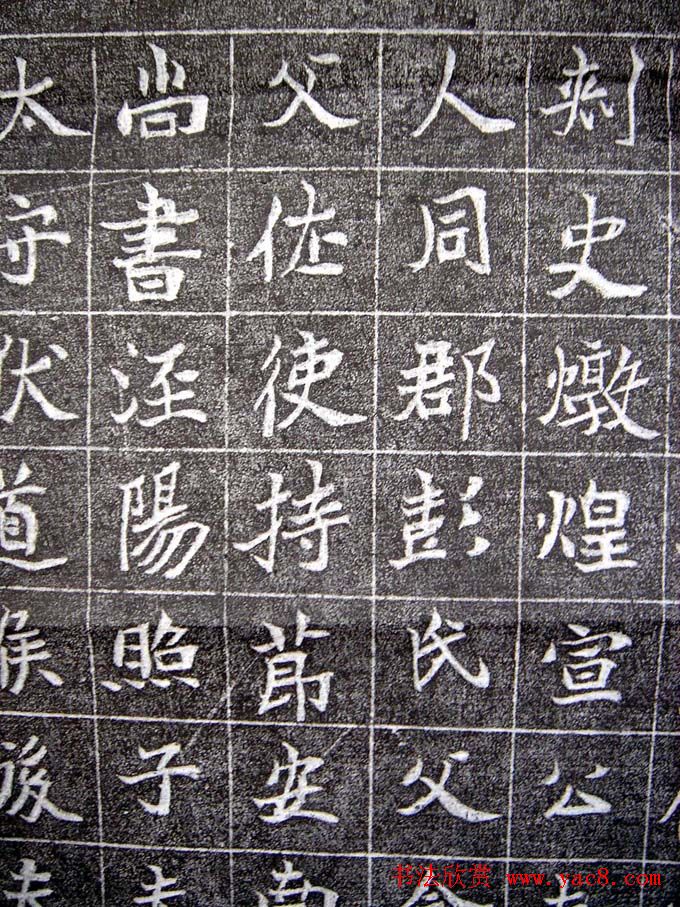 刺史燉煌宣公
人同郡彭氏父
父佐使持節安南
尚書涇陽照子夫
太守伏道侯後夫
书法欣赏 www.yac8.com